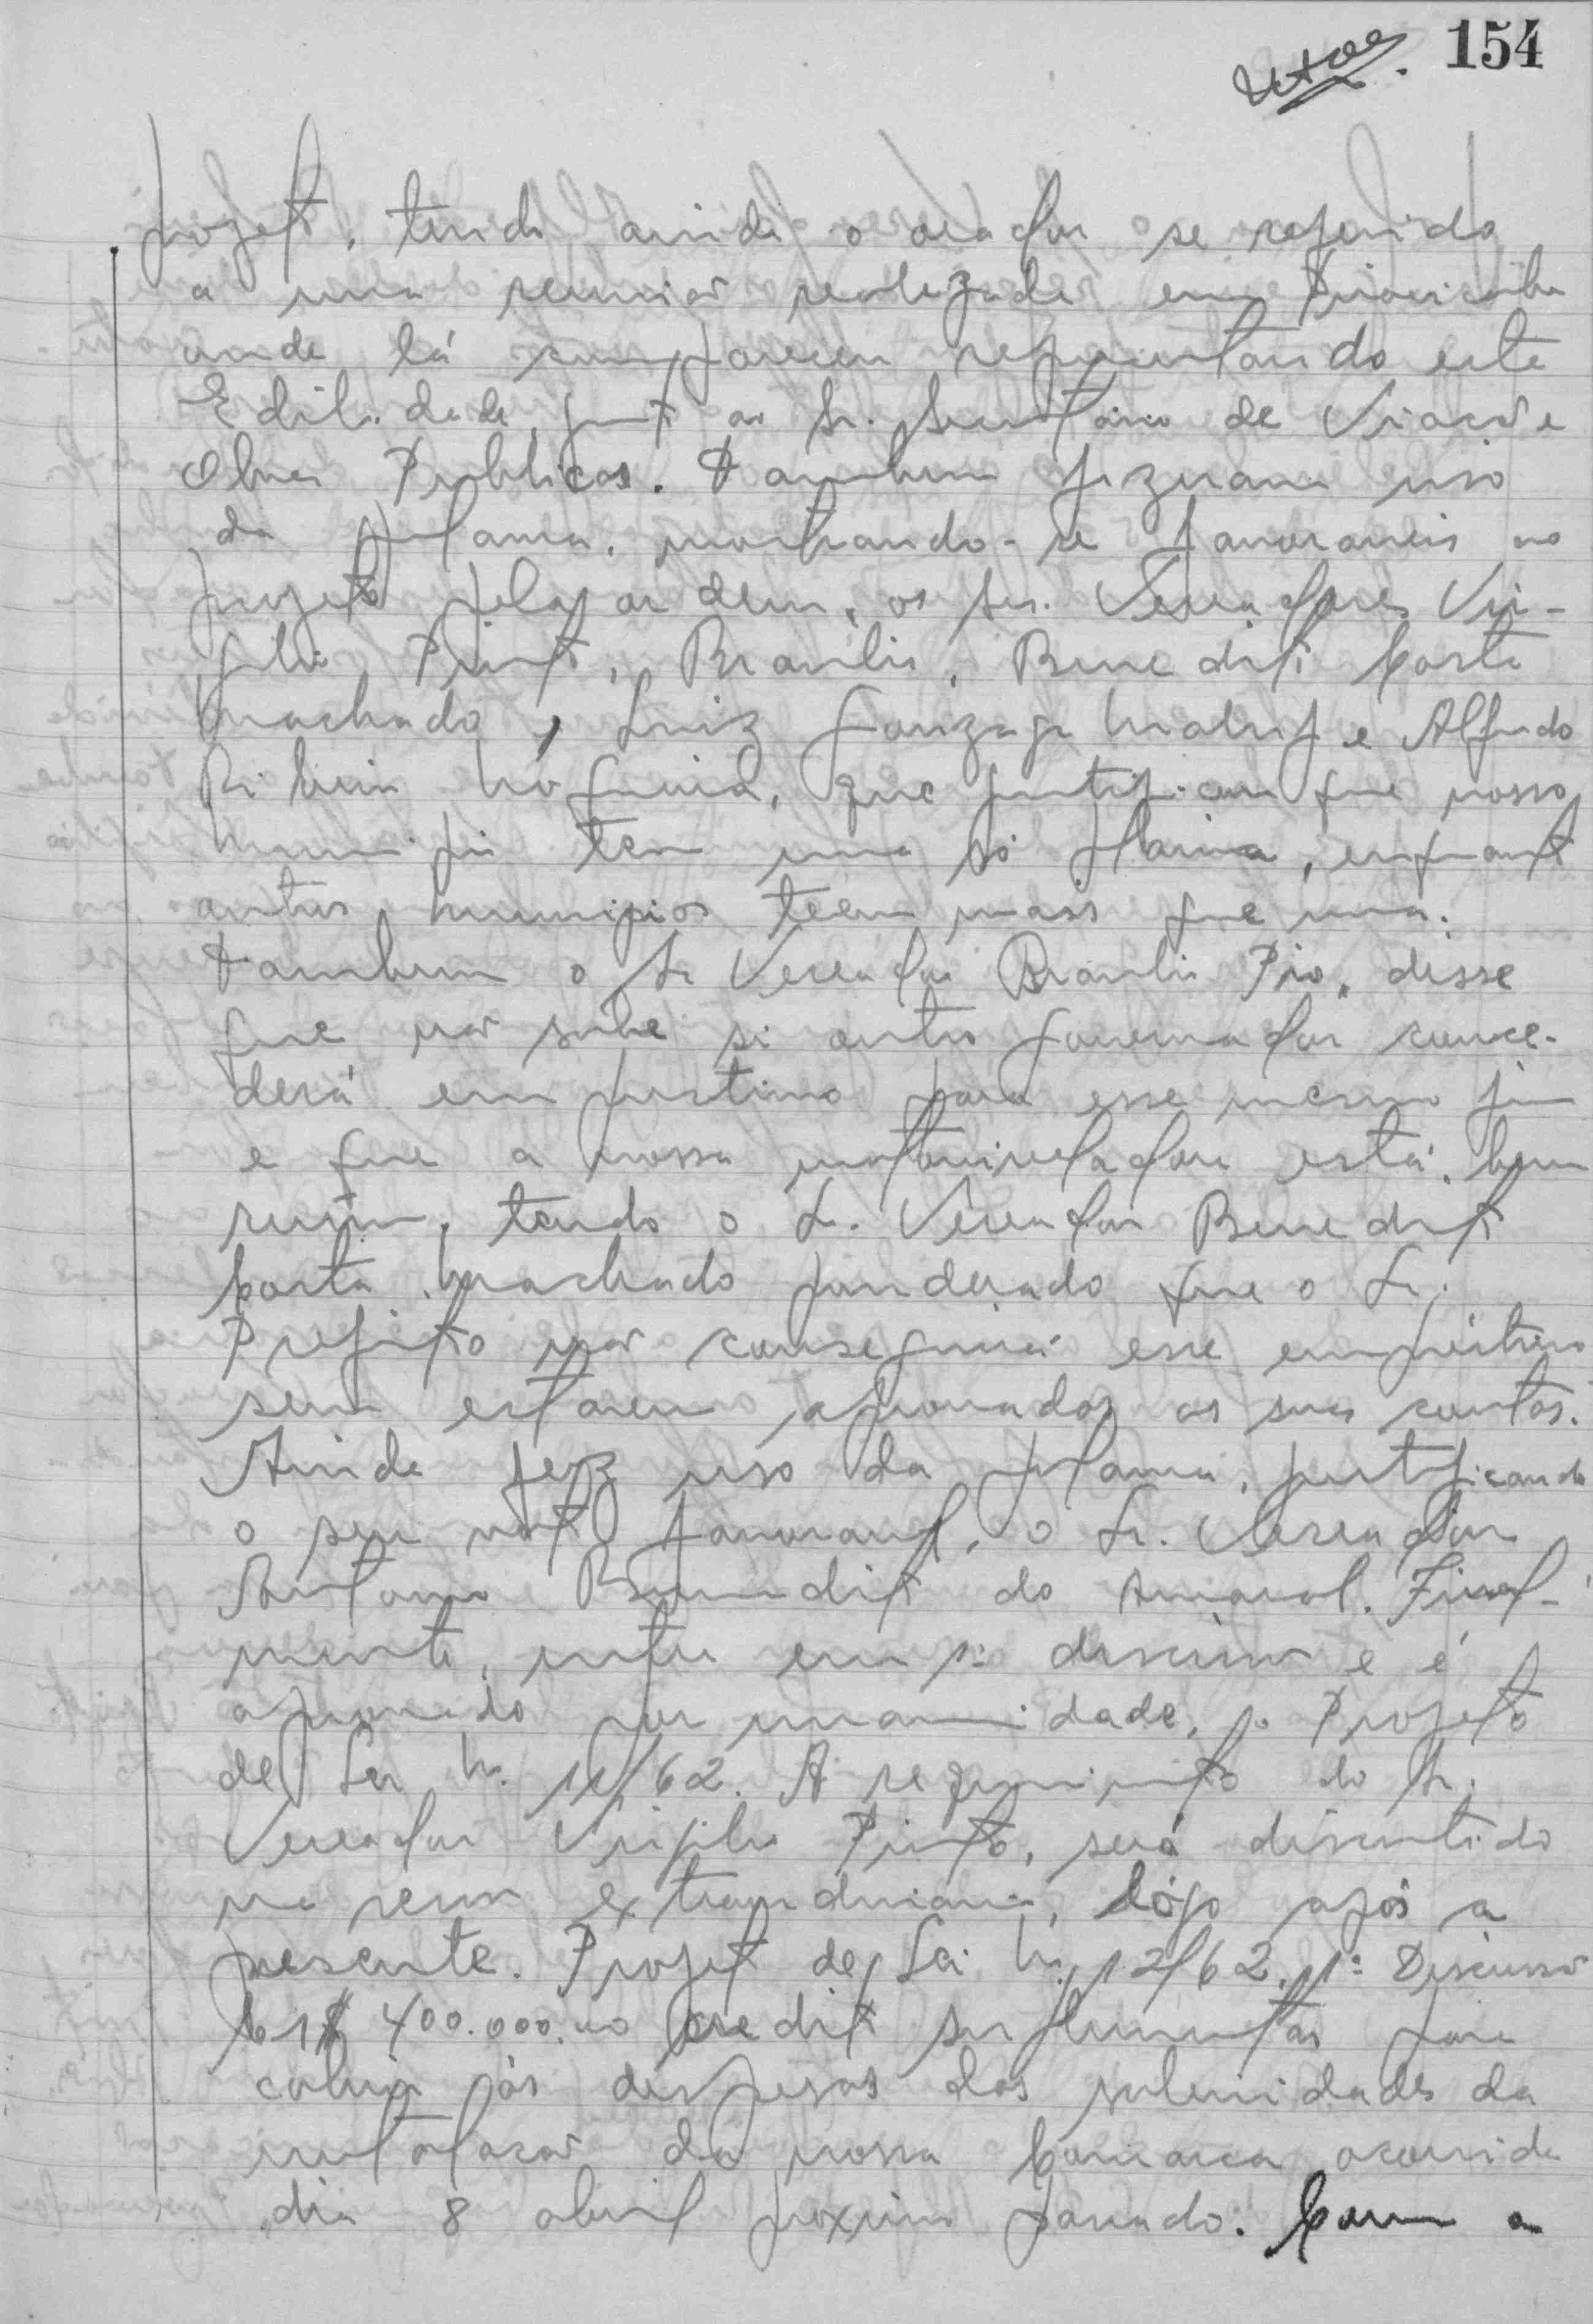 154
projeto, tendo ainda o orador se referido
a uma reunião realizada em Piracicaba
onde lá compareceu representando esta
Edilidade, junto ao Sr. Secretário de Viação e
Obras Publicas. Tambem fizeram uso
da palavra, mostrando-se favoraveis ao
projeto pela ordem, os Srs. Vereadores Vir-
gilio Pinto, Braulio, Benedito Costa
Machado, Luiz Gonzaga e Alfredo
Ribeiro Nogueira, que justificam que nosso
Municipio tem uma só plaina, enquanto
outros municipios teem mais que uma.
Tambem o Sr Vereador Braulio Pio, disse
que não sabe si outro governador conce-
derá emprestimo para esse mesmo fim
e que a nossa motoniveladora está bem
ruim, tendo o Sr. Vereador Benedito
Costa Machado ponderado que o Sr.
Prefeito não conseguirá esse empréstimo
sem estarem aprovadas as suas contas.
Ainda fez uso da palavra, justificando
o seu voto favoravel, o Sr. Vereador
Antonio Benedito do Amaral. Final-
mente, entra em 1ª discussão e é
aprovado por unanimidade, o Projeto
de Lei N. 11/62. A requerimento do Sr.
Vereador Virgilio Pinto, será discutido
na sessão extraordinaria, lógo após a
presente. Projeto de Lei N. 12/62. 1ª Discussão
Cr$ 400.000.00 Credito suplementar para
cobrir ás despesas das solenidades da
instalação da nossa Comarca ocorrida
dia 8 abril proximo passado. Com a